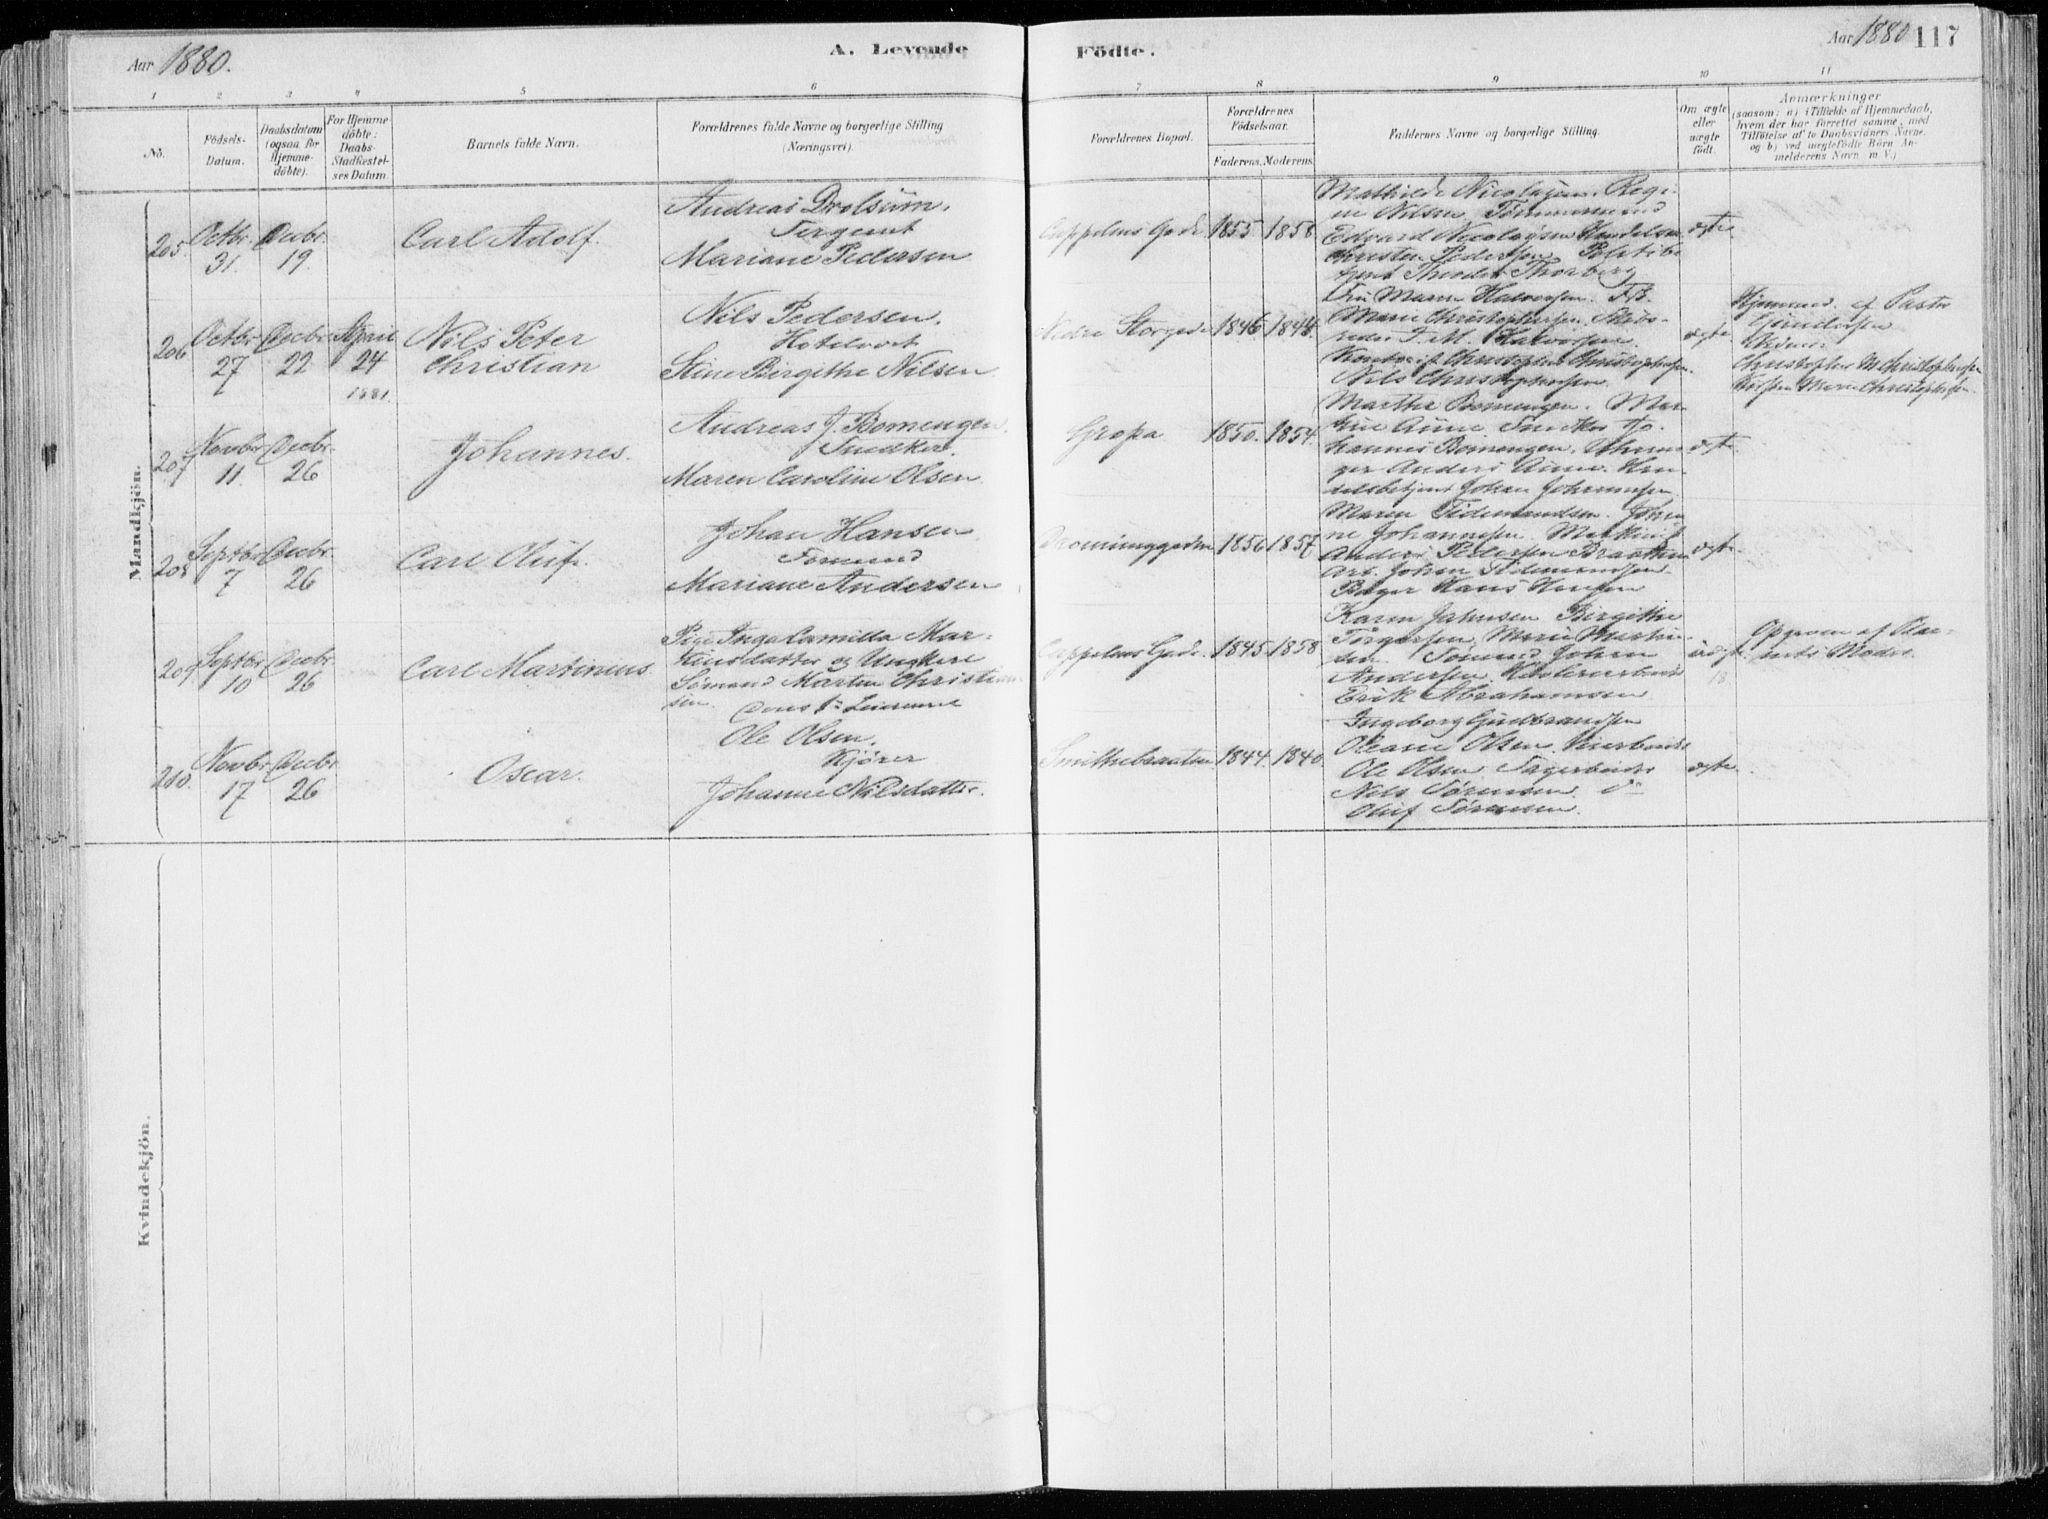 Aar 1880.
A. Levende
Födte.
Aar 1880
117
1 2 3 4 5 6 7 8 9 10 11
No.
Födsels-
Datum.
Daabsdatum
(ogsaa for
Hjemme-
döbte).
For Hjemme-
döbte:
Daabs-
Stadfæstel-
ses Datum.
Barnets fulde Navn.
Forældrenes fulde Navne og borgerlige Stilling
(Næringsvei).
Forældrenes Bopæl.
Forældrenes
Födselsaar.
Faderens. Moderens.
Faddernes Navne og borgerlige Stilling.
Om ægte
eller
uægte
födt.
Anmærkninger
(saasom: a) i Tilfælde af Hjemmedaab,
hvem der har forrettet samme, med
Tilföielse af to Daabsvidners Navne.
og b) ved uægtefödte Börn An-
melderens Navn m. V.)
Mandkjön.
205.
Octbr.
31.
Decbr.
19.
Carl Adolf.
Andreas Drolsum,
Sergeant
Mariane Pedersen
Cappelens Gade
1855
1858
Mathilde Nicolaysen. Regi-
ne Nilsen
Edvard Nicolaysen
Christen Pedersen Politibe
tjent Theodor Thorberg
ægte.
206
Octbr
27
Decbr.
22
24
1881.
Nils Peter
Christian
Nils Pedersen.
Hotelvært
Stine Birgithe Nilsen
Nedre Storgade
1846
1844.
Fru Maren Halvorsen.
Marie Christophersen. Skibs-
reder J. M. Halvorsen
Christophersen.
Nils Christophersen.
ægte
af Pastor
Christopher M Christophersen
Marie Christophersen.
207
Novbr
11.
Decbr.
26
Johannes.
Andreas J. Bomengen,
Snedker.
Maren Caroline Olsen
Gropa
1850.
1854.
Marthe Bomengen. Mar-
Snedker Jo-
hannes Bomengen.
ger Anders
delsbetjent Johan Johannesen
ægte.
208
Septbr
7
Decbr.
26
Carl Oluf.
Johan Hansen
Sømand
Mariane Andersen
1856
1857
Maren Tidemandsen.
ne Johannesen
Anders Pedersen Braathen
Arb. Johan Tidemandsen.
Bager Hans Hansen
ægte.
209
Septbr
10
Decbr
26
Carl Martinius.
Pige Inga Camilla Mar-
tinsdatter og Ungkarl
Sømand Martin Christian
sen.
Cappelens Gade.
1845.
1858
Karen Jahnsen Birgithe
Torgersen, Marie Martin-
sen. Sømand Johan
Andersen
Erik Abrahamsen
uægte.
Opgiven af Bar-
nets Moder.
18
210.
Novbr.
17
Decbr.
26
Oscar.
Ole Olsen.
Kjører
Johanne Nilsdatter.
Smithebraaten
1844.
1840.
Ingeborg Gudbrandsen
Oleane Olsen
Ole Olsen
Nils Sørensen do
Oluf Sørensen.
ægte.
Kvindekjön.